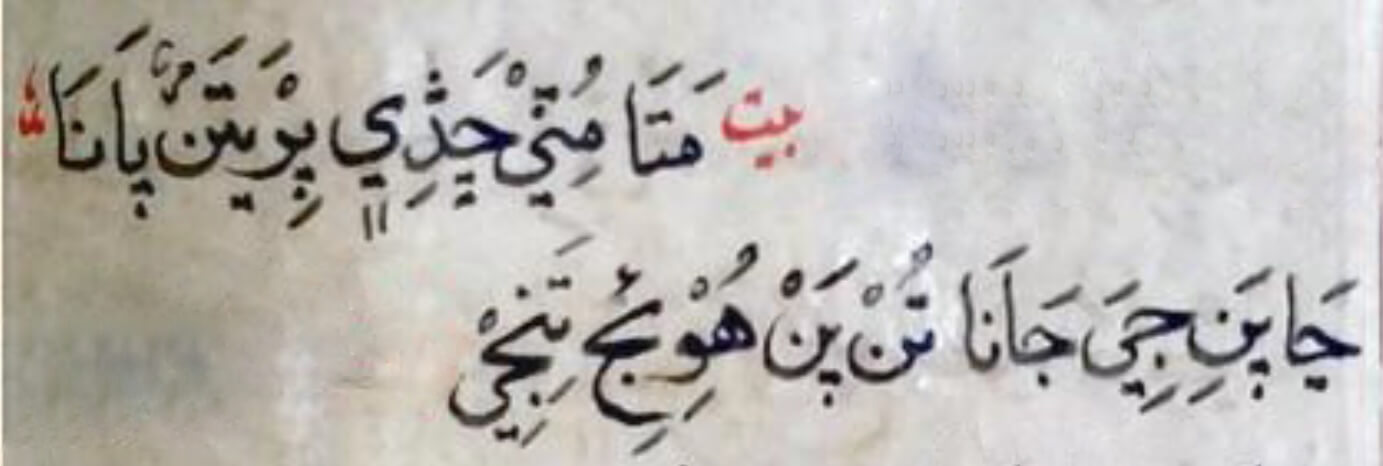 بيت مَتَا مُنِيْ چَڎِي پِرْيَتَنْ پَانَا
چَا پَنِ جِيَ جَانَا تُنْ پَنْ هُوْئِجِ تَنِجِيْ